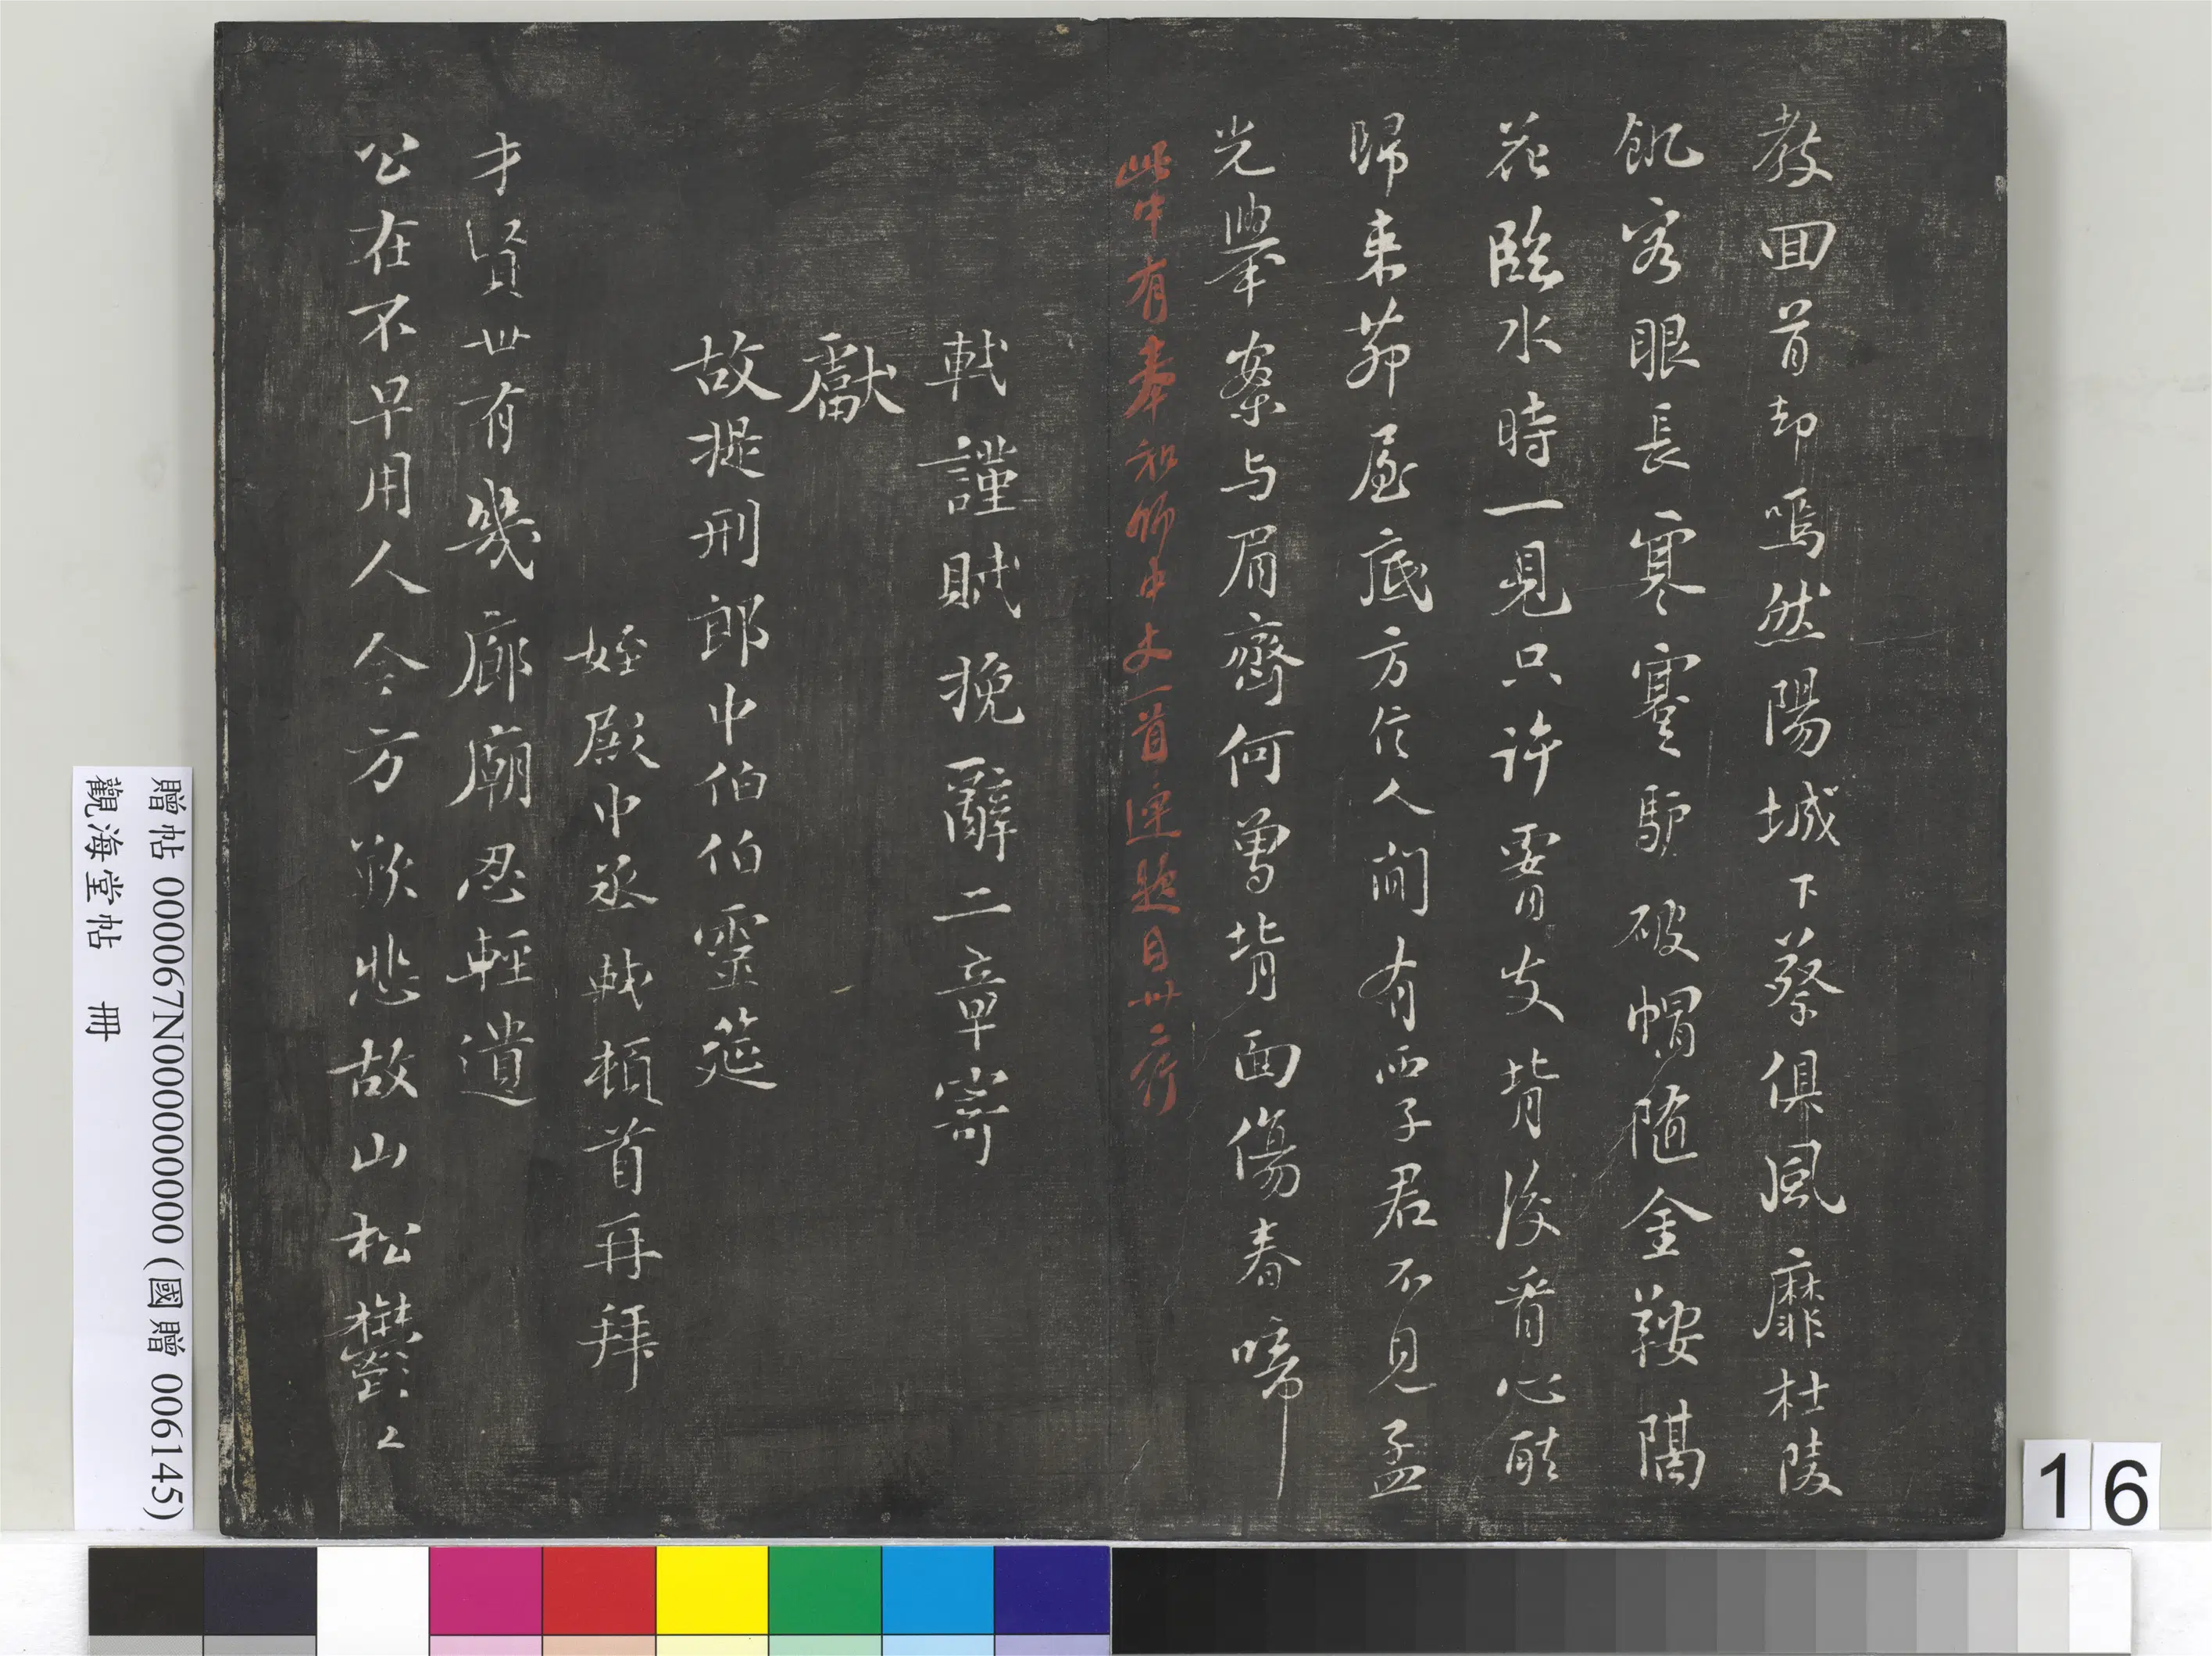 教回首却嫣然陽城下蔡俱風靡杜陵
飢客眼長寒蹇驢破帽隨金鞍隔
花臨水時一見只許腰支背後看心醉
歸来茆屋底方信人間有西子君不見孟
光舉案与眉齊何曾背面傷春啼
此中有奉和師中丈一首連題目卅二行
軾謹賦挽辭二章寄
獻
故提刑郎中伯伯靈筵
姪殿中丞軾頓首再拜
才賢世有幾廊廟忍輕遺
公在不早用人今方歎悲故山松鬱〻
贈帖 000067N000000000 (國贈 006145)
觀海堂帖 冊
16